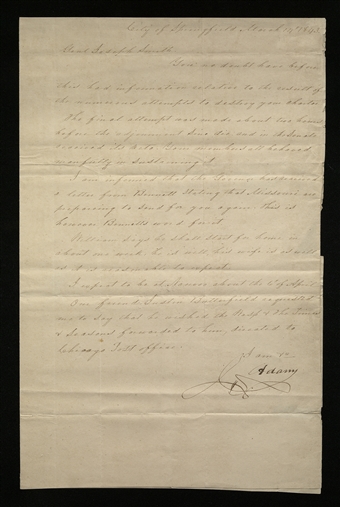 City of Springfield March 1843
Genl Joseph Smith
You no doubt have before
this had information relative to the result of
the numerous attempts to destroy your charter
The final attempt was made about two hours
before the adjournment Sine die and in the Senate
received the veto. Our men have all behaved
manfully in sustaining it
I am informed that the Governor has received
a letter from Bennett stating that Missouri is
preparing to send for you again. this is
however Bennetts word first
William says he shall start for home in
about one week, he is well, his wife is as well
as it is reasonable to expect.
I expect to be at about the of April
Our friend Justin Butterfield requested
me to say that he wished the Wasp & The Times
& Seasons forwarded to him, directed to
Chicago Post office.
I am &c
J Adams